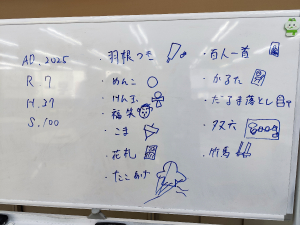 AD. 2025
R. 7
H. 37
S. 100
・羽根つき
・めんこ
・けん玉
・福笑
・こま
・花札
・たこあげ
・百人一首
・かるた
・だるま落とし
・双六
・竹馬